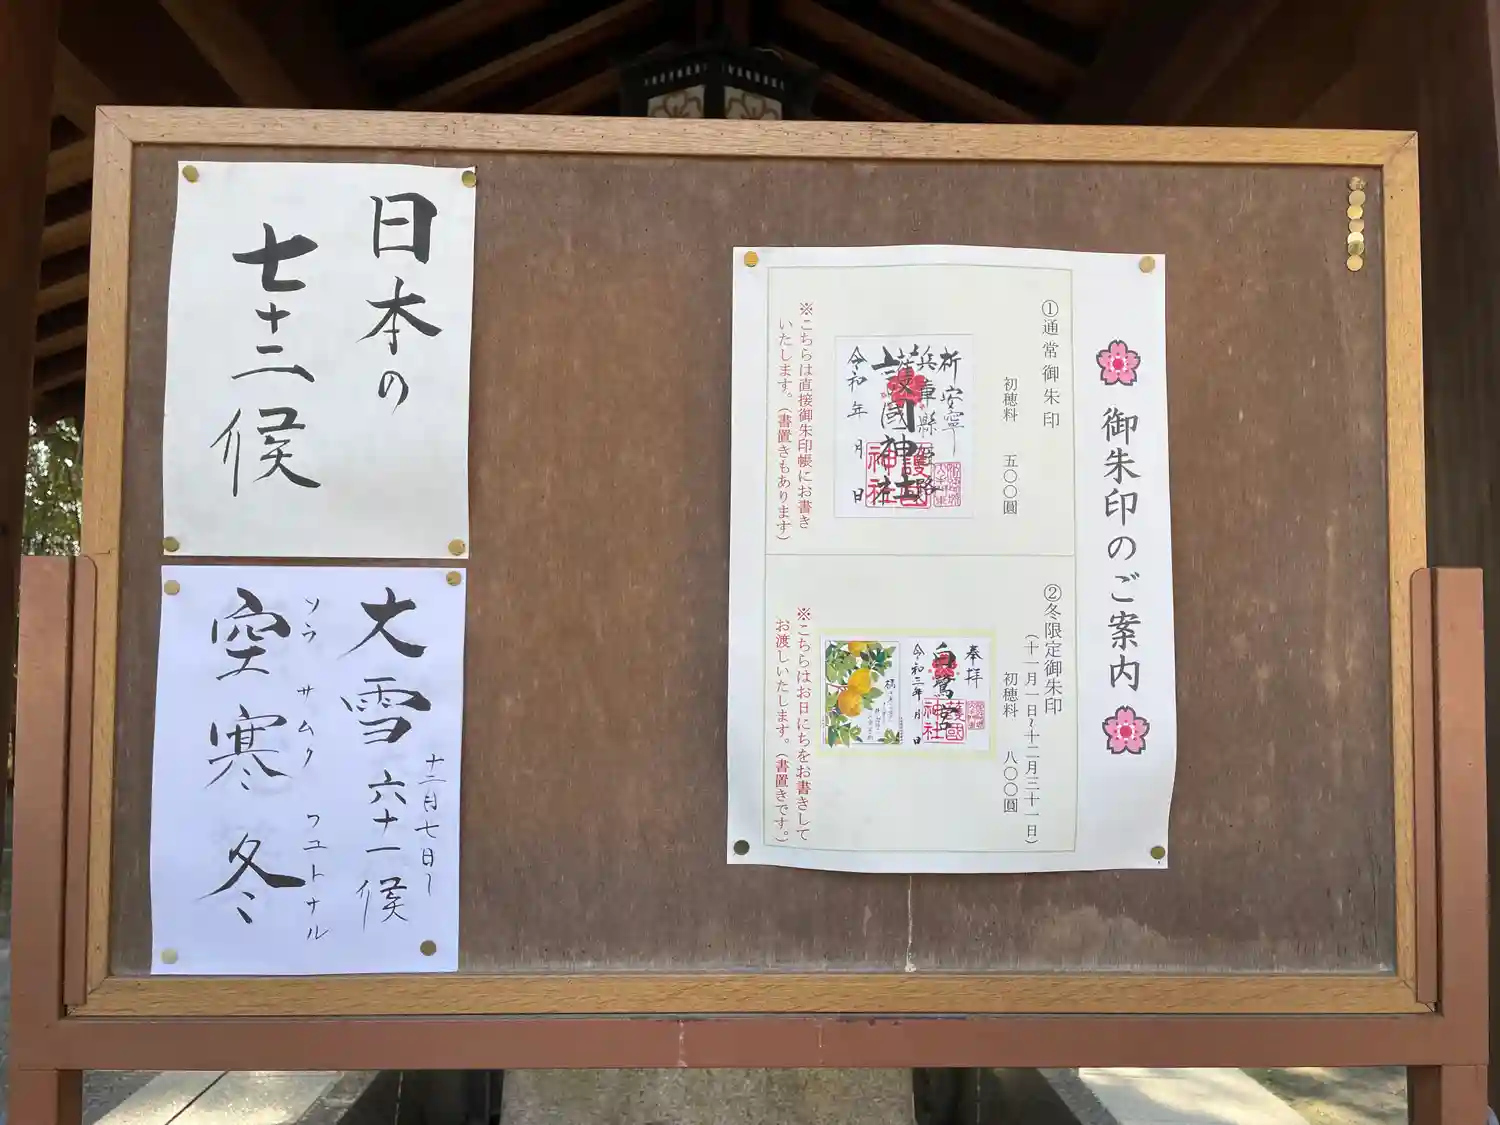 日本の
七十二候
十二月七日〜
大雪 六十一候
ソラ サムク フユトナル
空寒冬
御朱印のご案内
①通常御朱印
初穂料 五〇〇圓
祈安寧
兵庫縣姫路
護國神社
令和 年 月 日
護国
神社
※こちらは直接御朱印帳にお書き
いたします。(書置きもあります)
②冬限定御朱印
(十一月一日〜十二月三十一日)
初穂料 八〇〇圓
奉拝
白鷺宮
護國
神社
令和三年 月 日
橘
※こちらはお日にちをお書きして
お渡しいたします。(書置きです。)